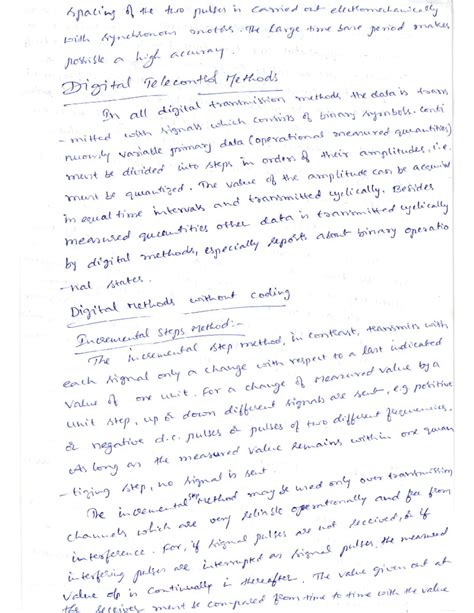 spacing of the two pulses is carried out electromechanically
with synchronous motors. The large time base period makes
possible a high accuracy.
Digital Telecontrol Methods
In all digital transmission methods, the data is trans
-mitted with signals which consists of binary symbols. Conti
nuously variable primary data (operational measured quantities)
must be divided into steps in order of their amplitudes, i.e.
must be quantized. The value of the amplitude can be acquired
in equal time intervals and transmitted cyclically. Besides
measured quantities other data is transmitted cyclically
by digital methods, especially reports about binary operatio
-nal states.
Digital Methods without Coding
Incremental Steps Method:-
The incremental step method, in contrast, transmits with
each signal only a change with respect to a last indicated
value of one unit. For a change of measured value by a
unit step, up & down different signals are sent, e.g positive
& negative d.c. pulses & pulses of two different frequencies.
As long as the measured value remains within one quan
-tizing step, no signal is sent.
The incremental step method may be used only over transmission
channels which are very reliable operationally and free from
interference. For, if signal pulses are not received, & if
interfering pulses are interrupted as signal pulses, the measured
value o/p is continually in thereafter. The value given out at
the receiver must be compared from time to time with the value